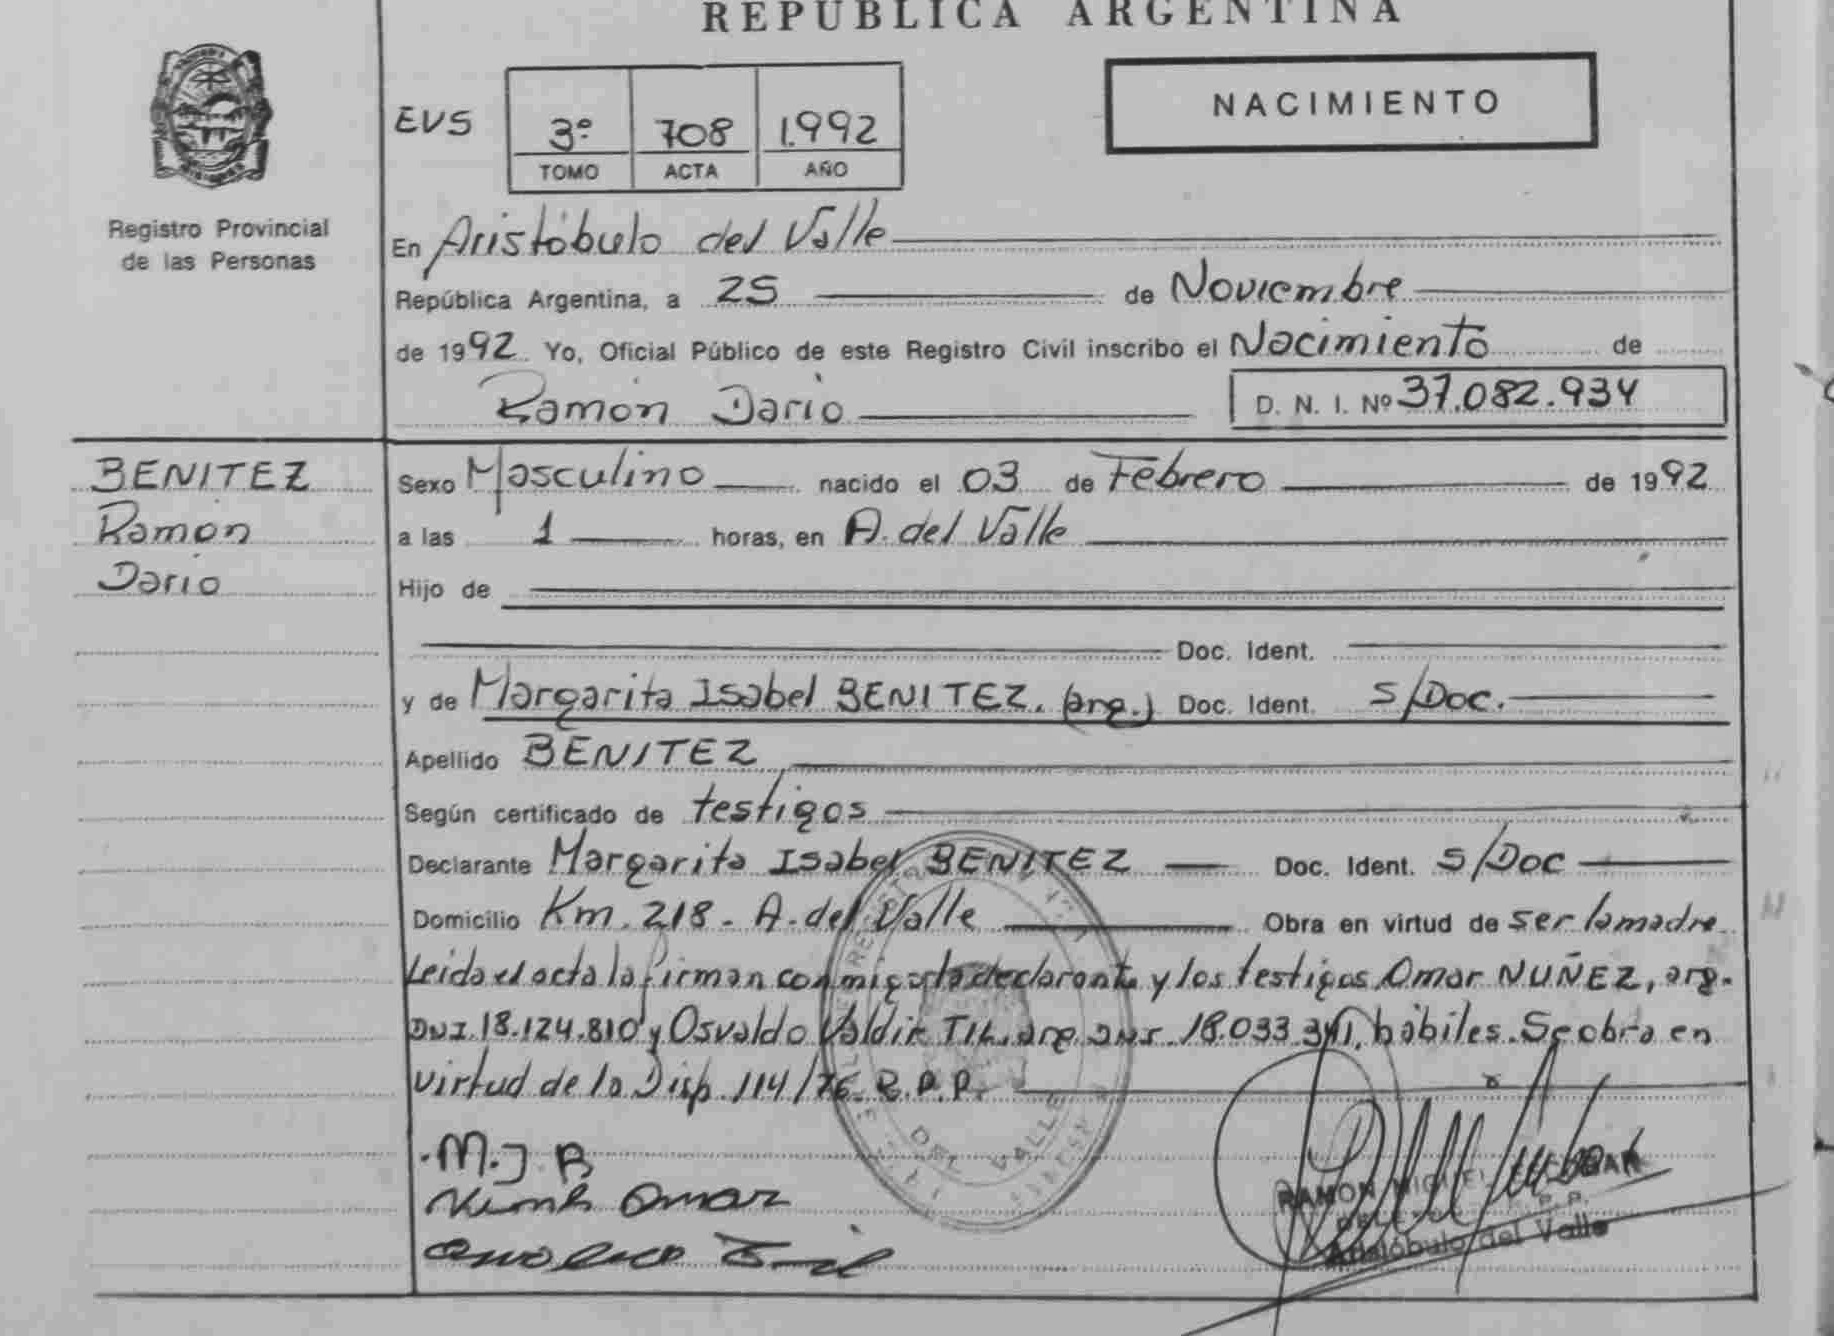 REPUBLICA ARGENTINA
NACIMIENTO
EVS
3º 708 1.992
TOMO ACTA AÑO
Registro Provincial
de las Personas
En Aristóbulo del Valle
República Argentina, a 25 de Noviembre
de 1992 Yo, Oficial Público de este Registro Civil inscribo el Nacimiento de
Ramón Dario
D. N. I. Nº 37.082.934
BENITEZ
Ramón
Dario
Sexo Masculino nacido el 03 de Febrero de 1992
a las 1 horas, en A. del Valle
Hijo de
Doc. Ident.
y de Margarita Isabel BENITEZ. (arg.) Doc. Ident. S/Doc.
Apellido BENITEZ
Según certificado de testigos
Declarante Margarita Isabel BENITEZ Doc. Ident. S/Doc
Domicilio Km. 218 - A. del Valle Obra en virtud de ser la madre
Leida el acta la firman conmigo la declarante y los testigos Omar NUÑEZ, arg.
DNI. 18.124.810 y Osvaldo Valdir arg. DNI. 18.033. hábiles. Se obra en
virtud de la Disp. 114/76. R.P.P.
DEL VALLE
M.J B
Omar
RAMON MIGUEL ESCOBAR
R. P. P.
Aristóbulo del Valle